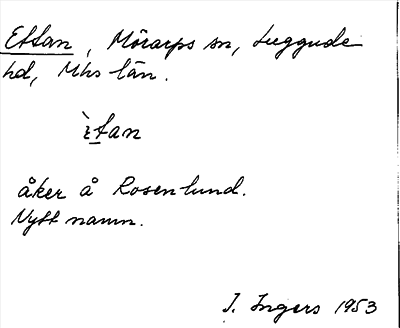 Ettan, Mörarps sn, Luggude
hd, Mhs län.
ètan
åker å Rosenlund.
Nytt namn.
I. Ingers 1953